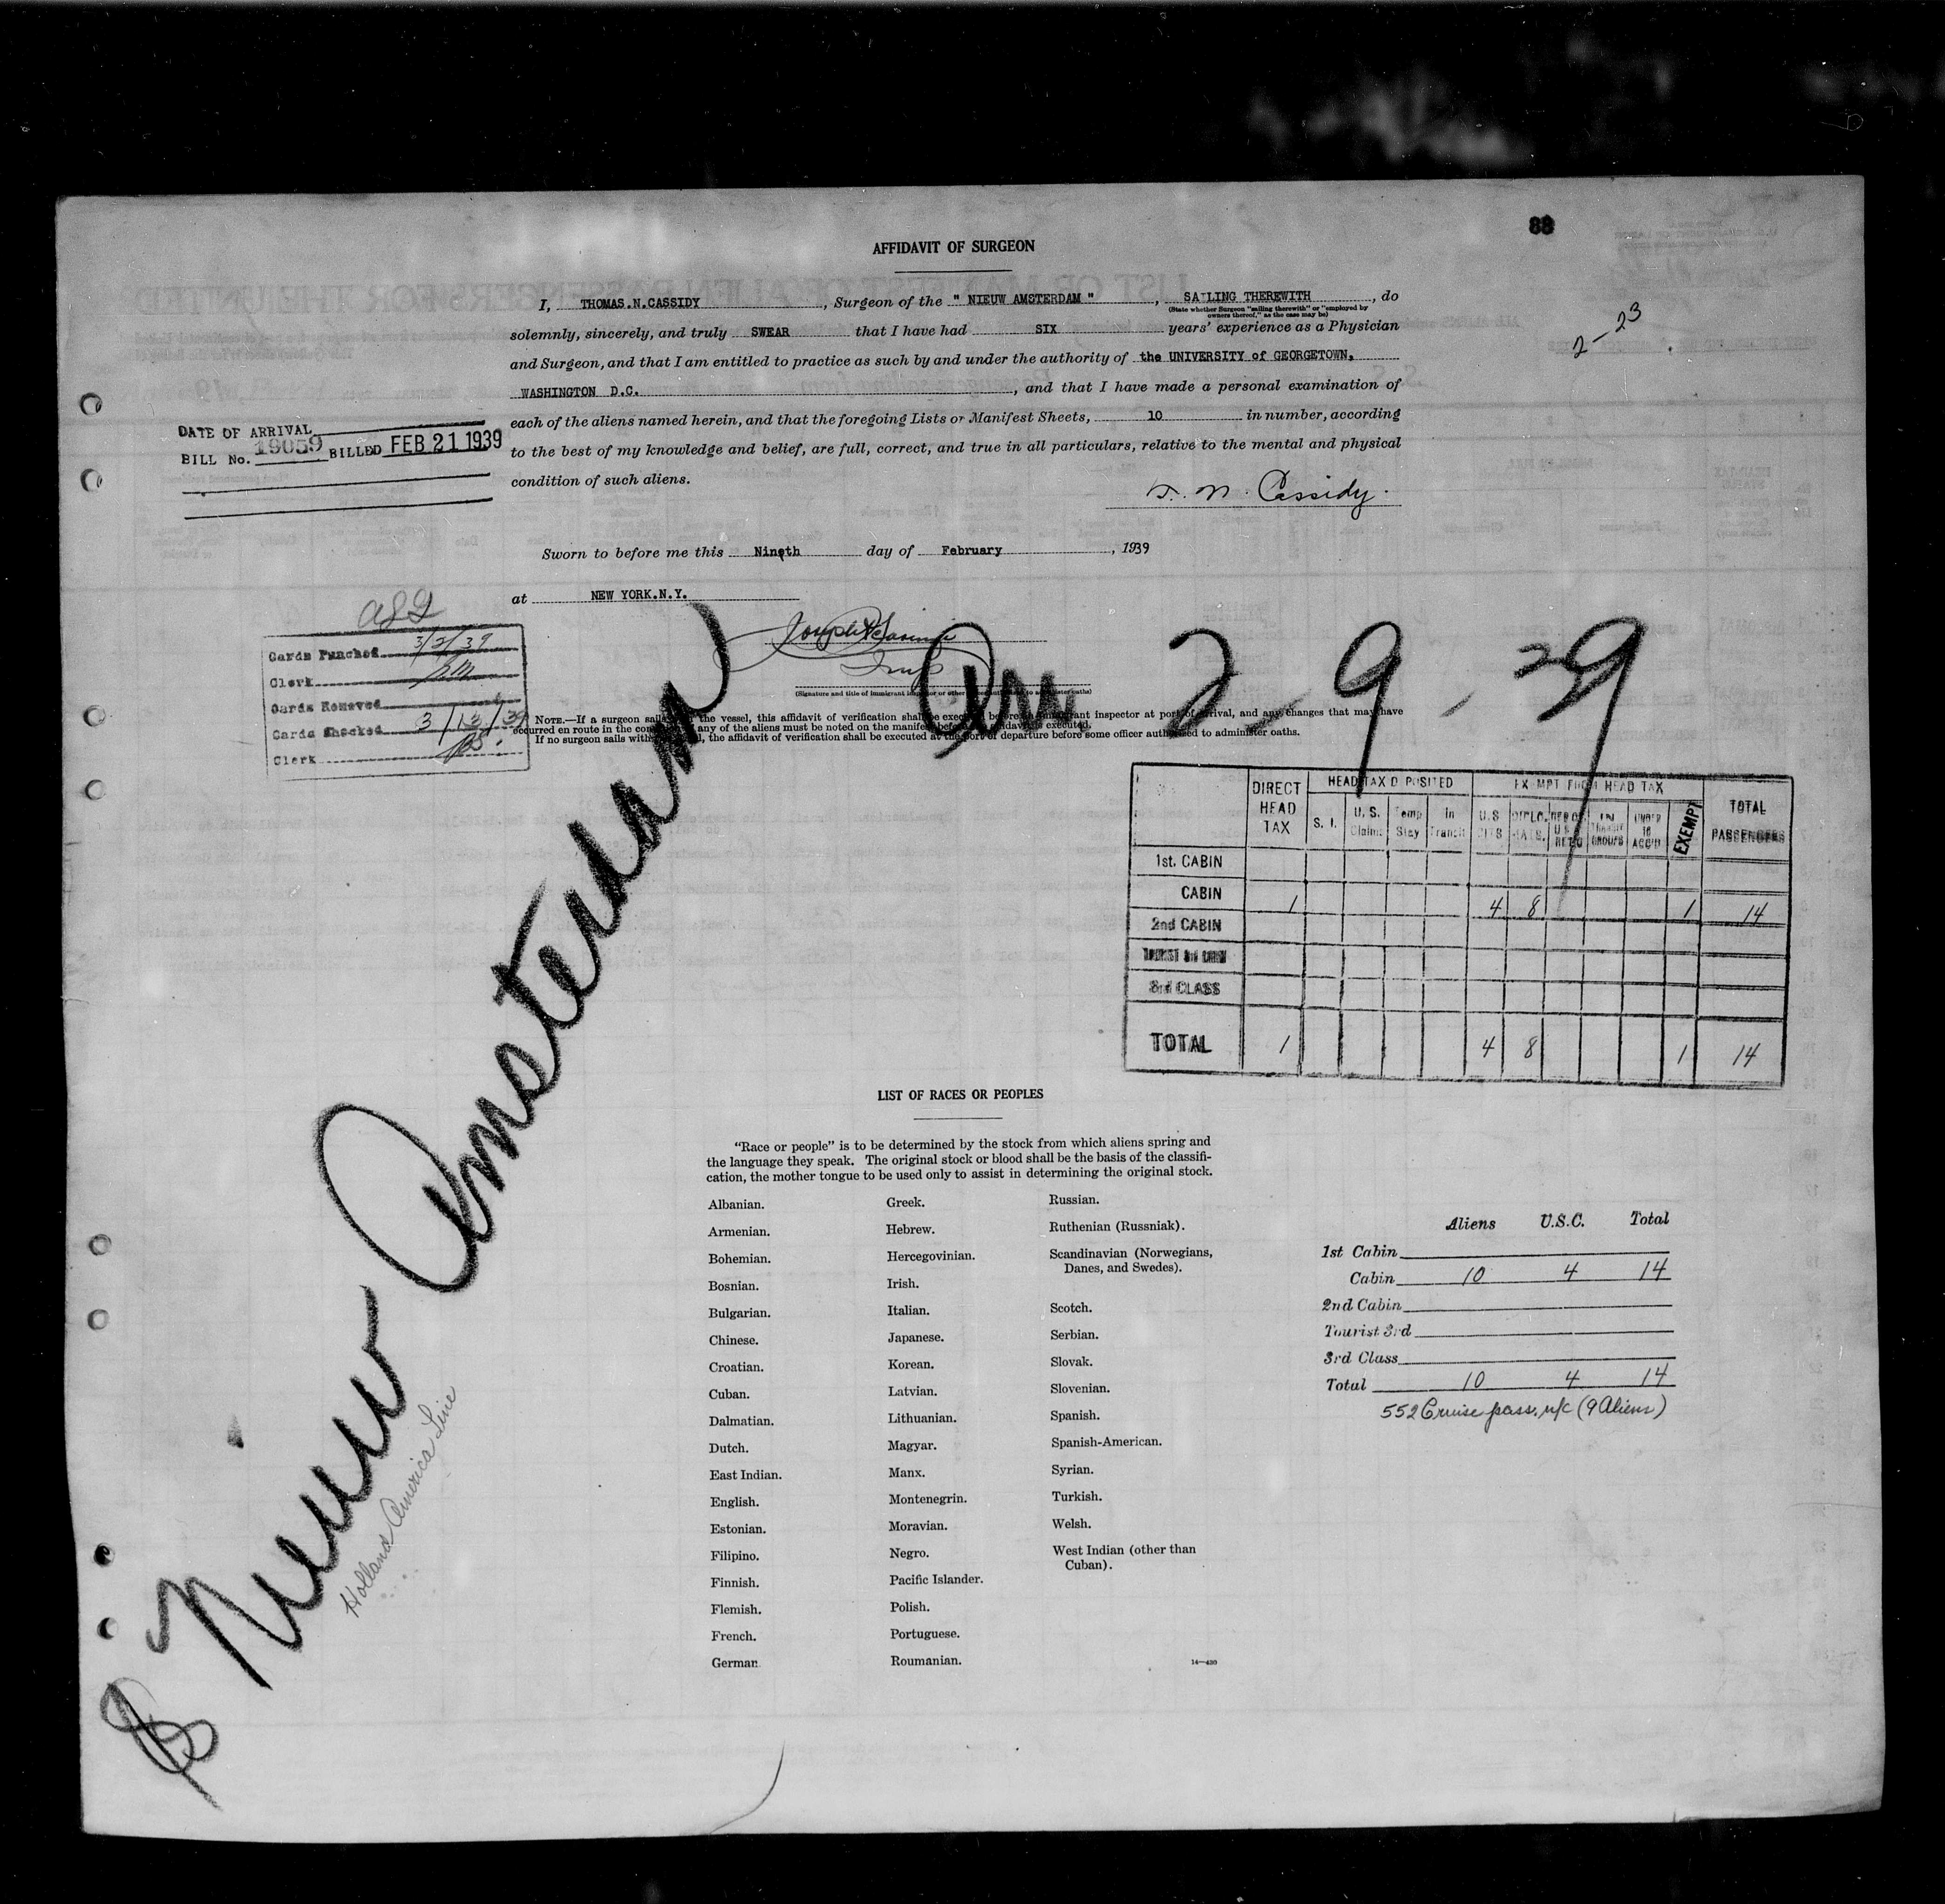 88
AFFIDAVIT OF SURGEON
I, THOMAS.N.CASSIDY, Surgeon of the " NIEUW AMSTERDAM ", SAILING THEREWITH, do
(State whether Surgeon "sailing therewith" or "employed by
owners thereof," as the case may be)
solemnly, sincerely, and truly SWEAR that I have had SIX years' experience as a Physician
and Surgeon, and that I am entitled to practice as such by and under the authority of the UNIVERSITY of GEORGETOWN,
WASHINGTON D.C., and that I have made a personal examination of
each of the aliens named herein, and that the foregoing Lists or Manifest Sheets, 10 in number, according
to the best of my knowledge and belief, are full, correct, and true in all particulars, relative to the mental and physical
condition of such aliens.
T. N. Cassidy.
2-23
DATE OF ARRIVAL
BILL No. 19059 BILLED FEB 21 1939
Sworn to before me this Nineth day of February, 1939
at NEW YORK.N.Y.
Insp
(Signature and title of immigrant inspector or other officer authorized to administer oaths)
Cards Punched 3/2/39
Clerk
Cards Removed
Cards Checked 3/13/39
Clerk
NOTE.—If a surgeon sails with the vessel, this affidavit of verification shall be executed before an immigrant inspector at port of arrival, and any changes that may have
occurred en route in the condition of any of the aliens must be noted on the manifest before affidavit is executed.
If no surgeon sails with vessel, the affidavit of verification shall be executed at the port of departure before some officer authorized to administer oaths.
Arr 2-9-39
Nieuw Amsterdam
Holland America Line
DIRECT HEAD TAX HEAD TAX DEPOSITED EXEMPT FROM HEAD TAX TOTAL PASSENGERS
S. I. U. S. Claims Temp Stay In Transit U.S CITS DIPLOMATS. IN TRANSIT GROUPS UNDER 16 ACC'D EXEMPT
1st. CABIN
CABIN 1 4 8 1 14
2nd CABIN
TOURIST 3rd CABIN
3rd CLASS
TOTAL 1 4 8 1 14
LIST OF RACES OR PEOPLES
"Race or people" is to be determined by the stock from which aliens spring and
the language they speak. The original stock or blood shall be the basis of the classifi-
cation, the mother tongue to be used only to assist in determining the original stock.
Albanian.
Armenian.
Bohemian.
Bosnian.
Bulgarian.
Chinese.
Croatian.
Cuban.
Dalmatian.
Dutch.
East Indian.
English.
Estonian.
Filipino.
Finnish.
Flemish.
French.
German
Greek.
Hebrew.
Hercegovinian.
Irish.
Italian.
Japanese.
Korean.
Latvian.
Lithuanian.
Magyar.
Manx.
Montenegrin.
Moravian.
Negro.
Pacific Islander.
Polish.
Portuguese.
Roumanian.
Russian.
Ruthenian (Russniak).
Scandinavian (Norwegians,
Danes, and Swedes).
Scotch.
Serbian.
Slovak.
Slovenian.
Spanish.
Spanish-American.
Syrian.
Turkish.
Welsh.
West Indian (other than
Cuban).
14—430
Aliens U.S.C. Total
1st Cabin
Cabin 10 4 14
2nd Cabin
Tourist 3rd
3rd Class
Total 10 4 14
552 Cruise pass. n/c (9 Aliens)